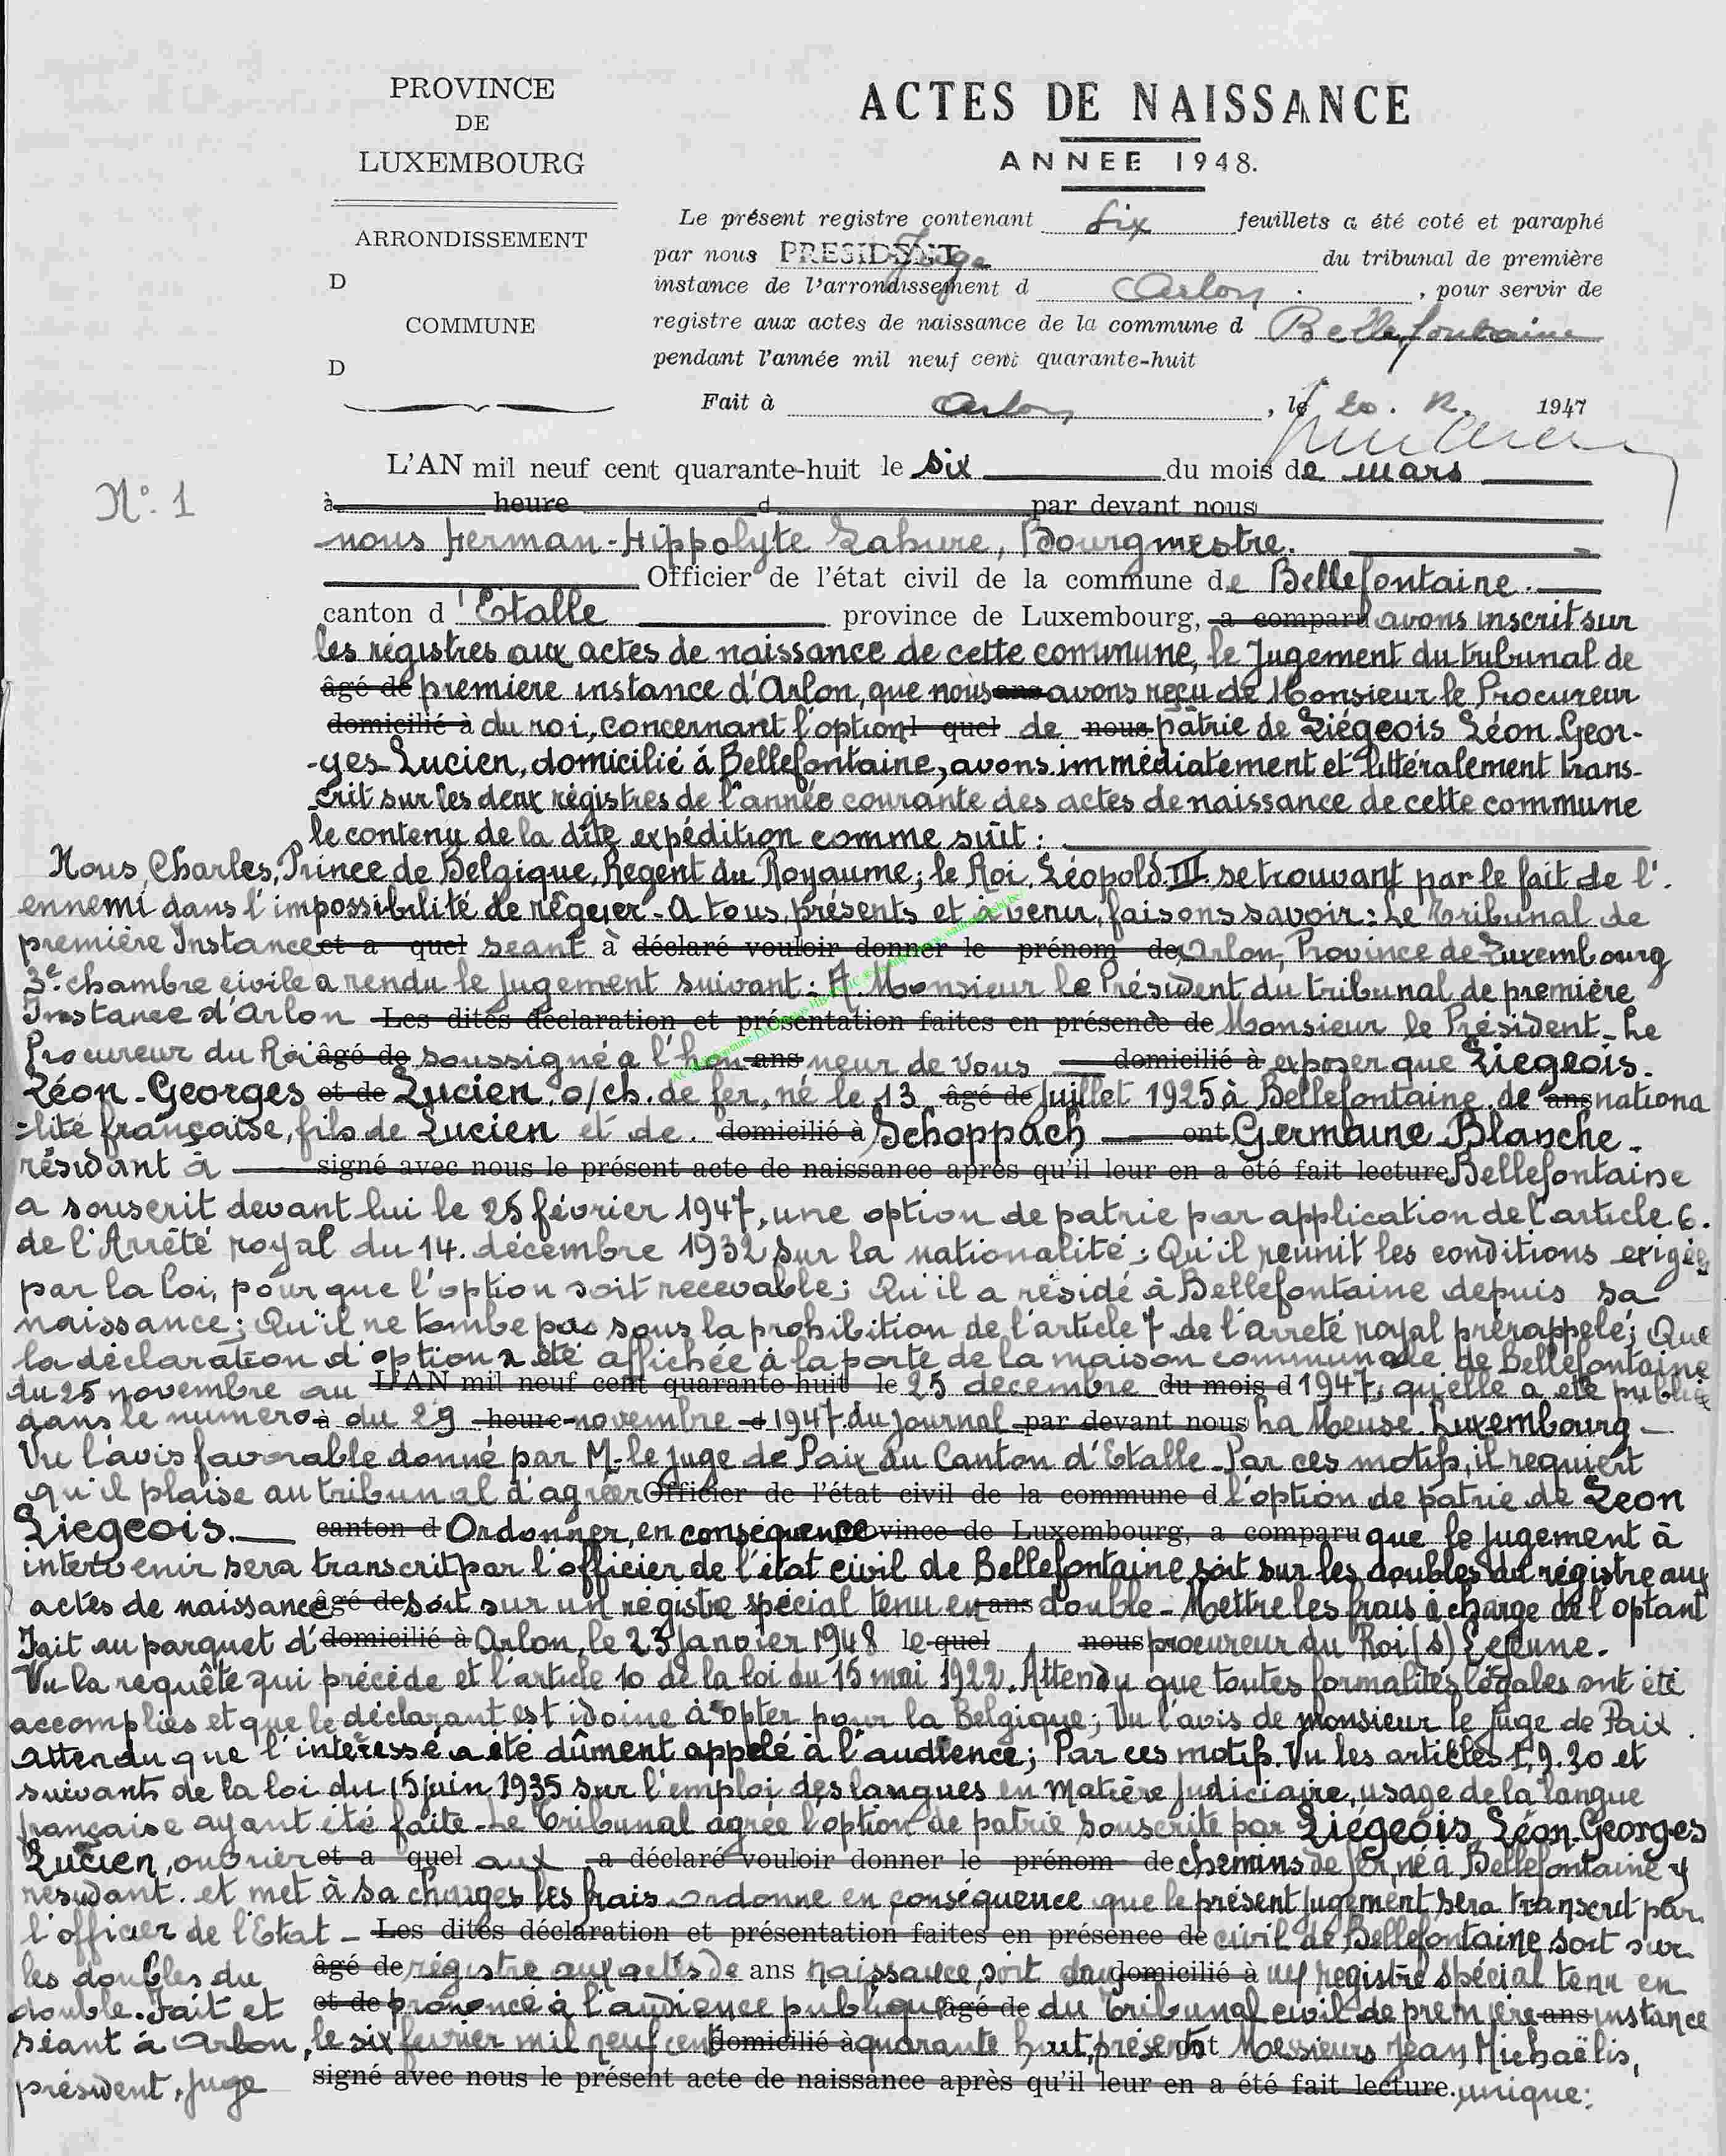 PROVINCE
DE
LUXEMBOURG
ARRONDISSEMENT
D
COMMUNE
D
ACTES DE NAISSANCE
ANNEE 1948.
Le présent registre contenant six feuillets a été coté et paraphé
par nous PRESIDENT Juge du tribunal de première
instance de l'arrondissement d Arlon , pour servir de
registre aux actes de naissance de la commune d Bellefontaine
pendant l'année mil neuf cent quarante-huit
Fait à Arlon , le 20. 12. 1947
N° 1
L'AN mil neuf cent quarante-huit le six du mois de mars
à heure d par devant nous
nous Herman-Hippolyte Lahure, Bourgmestre.
Officier de l'état civil de la commune de Bellefontaine.
canton d'Etalle province de Luxembourg, a comparu avons inscrit sur
les régistres aux actes de naissance de cette commune, le Jugement du tribunal de
âgé de première instance d'Arlon, que nous ans avons reçu de Monsieur le Procureur
domicilié à du roi, concernant l'option l quel de nous patrie de Liégeois Léon-Geor-
-ges Lucien, domicilié à Bellefontaine, avons immédiatement et littéralement trans-
crit sur les deux régistres de l'année courante des actes de naissance de cette commune
le contenu de la dite expédition comme suit :
Nous, Charles, Prince de Belgique, Régent du Royaume; le Roi Léopold III se trouvant par le fait de l'
ennemi dans l'impossibilité de régner - A tous présents et à venir, faisons savoir : Le Tribunal de
première Instance et a quel seant à déclaré vouloir donner le prénom de Arlon, Province de Luxembourg
3e chambre civile a rendu le jugement suivant : A. Monsieur le Président du tribunal de première
Instance d'Arlon Les dites déclaration et présentation faites en présence de Monsieur le Président - Le
Procureur du Roi âgé de soussigné a l'hon ans neur de vous domicilié à exposer que Liegeois.
Léon-Georges et de Lucien. o/ch. de fer, né le 13 âgé de Juillet 1925 à Bellefontaine, de ans nationa
-lité française, fils de Lucien et de domicilié à Schoppach ont Germaine-Blanche.
résidant à signé avec nous le présent acte de naissance après qu'il leur en a été fait lecture. Bellefontaine
a souscrit devant lui le 25 février 1947, une option de patrie par application de l'article 6.
de l'Arrêté royal du 14. décembre 1932 sur la nationalité; Qu'il réunit les conditions exigées
par la loi, pour que l'option soit recevable; Qu'il a résidé à Bellefontaine depuis sa
naissance; Qu'il ne tombe pas sous la prohibition de l'article 7 de l'arrêté royal prérappelé; Que
la déclaration d'option a été affichée à la porte de la maison communale de Bellefontaine
du 25 novembre au L'AN mil neuf cent quarante-huit le 25 decembre du mois d 1947, qu'elle a été publiée
dans le numero à du 29 heure novembre d 1947 du journal par devant nous La Meuse. Luxembourg -
Vu l'avis favorable donné par M. le juge de Paix du Canton d'Etalle - Par ces motifs, il requiert
qu'il plaise au tribunal d'agréer Officier de l'état civil de la commune d l'option de patrie de Léon
Liegeois. canton d Ordonner, en conséquence province de Luxembourg, a comparu que le jugement à
intervenir sera transcrit par l'officier de l'état civil de Bellefontaine soit sur les doubles du régistre aux
actes de naissance âgé de soit sur un régistre spécial tenu en ans double - Mettre les frais à charge de l'optant
Fait au parquet d' domicilié à Arlon, le 23 Janvier 1948 le quel nous procureur du Roi (s) Lejeune.
Vu la requête qui précède et l'article 10 de la loi du 15 mai 1922. Attendu que toutes formalités légales ont été
accomplies et que le déclarant est idoine à opter pour la Belgique; Vu l'avis de monsieur le Juge de Paix.
Attendu que l'intéressé a été dûment appelé à l'audience; Par ces motifs. Vu les articles 1, 9. 30 et
suivants de la loi du 15 juin 1935 sur l'emploi des langues en matière Judiciaire, usage de la langue
française ayant été faite - Le Tribunal agrée l'option de patrie souscrite par Liégeois, Léon-Georges
Lucien, ouvrier et a quel aux a déclaré vouloir donner le prénom de chemins de fer, né à Bellefontaine y
résidant. et met à sa charges les frais - ordonne en conséquence que le présent Jugement sera transcrit par
l'officier de l'Etat - Les dites déclaration et présentation faites en présence de civil de Bellefontaine soit sur
les doubles du âgé de régistre aux actes de ans naissance, soit domicilié à un registre spécial tenu en
double. Fait et et de prononcé à l'audience publique âgé de du Tribunal civil de première ans instance
séant à Arlon, le six fevrier mil neuf cent domicilié à quarante huit, présents ont Messieurs Jean Michaëlis,
président, Juge signé avec nous le présent acte de naissance après qu'il leur en a été fait lecture. unique: